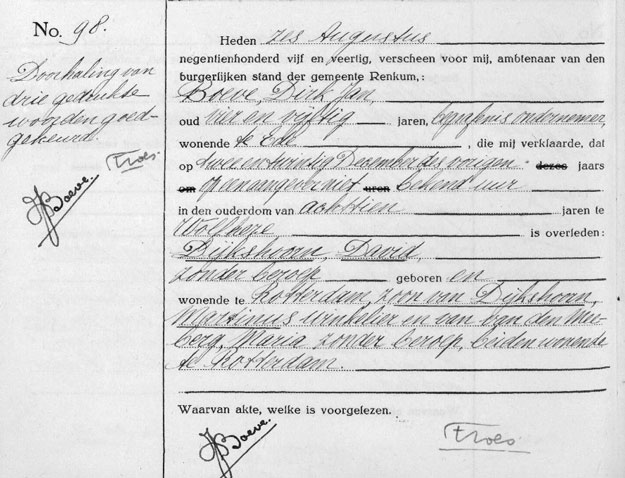 No. 98.
Doorhaling van
drie gedrukte
woorden goed-
gekeurd.
JBoeve.
Troes
Heden zes Augustus
negentienhonderd vijf en veertig, verscheen voor mij, ambtenaar van den
burgerlijken stand der gemeente Renkum,:
Boeve, Dirk Jan,
oud vier en vijftig jaren, begrafenis ondernemer,
wonende te Ede, die mij verklaarde, dat
op twee en twintig December des vorigen dezes jaars
om op een aangever niet uren bekend uur
in den ouderdom van achttien jaren te
Wolfheze is overleden:
Dijkshoorn, David,
zonder beroep geboren en
wonende te Rotterdam, zoon van Dijkshoorn,
Martinus winkelier en van van den
berg, Maria zonder beroep, beiden wonende
te Rotterdam.
Waarvan akte, welke is voorgelezen.
JBoeve.
Troes